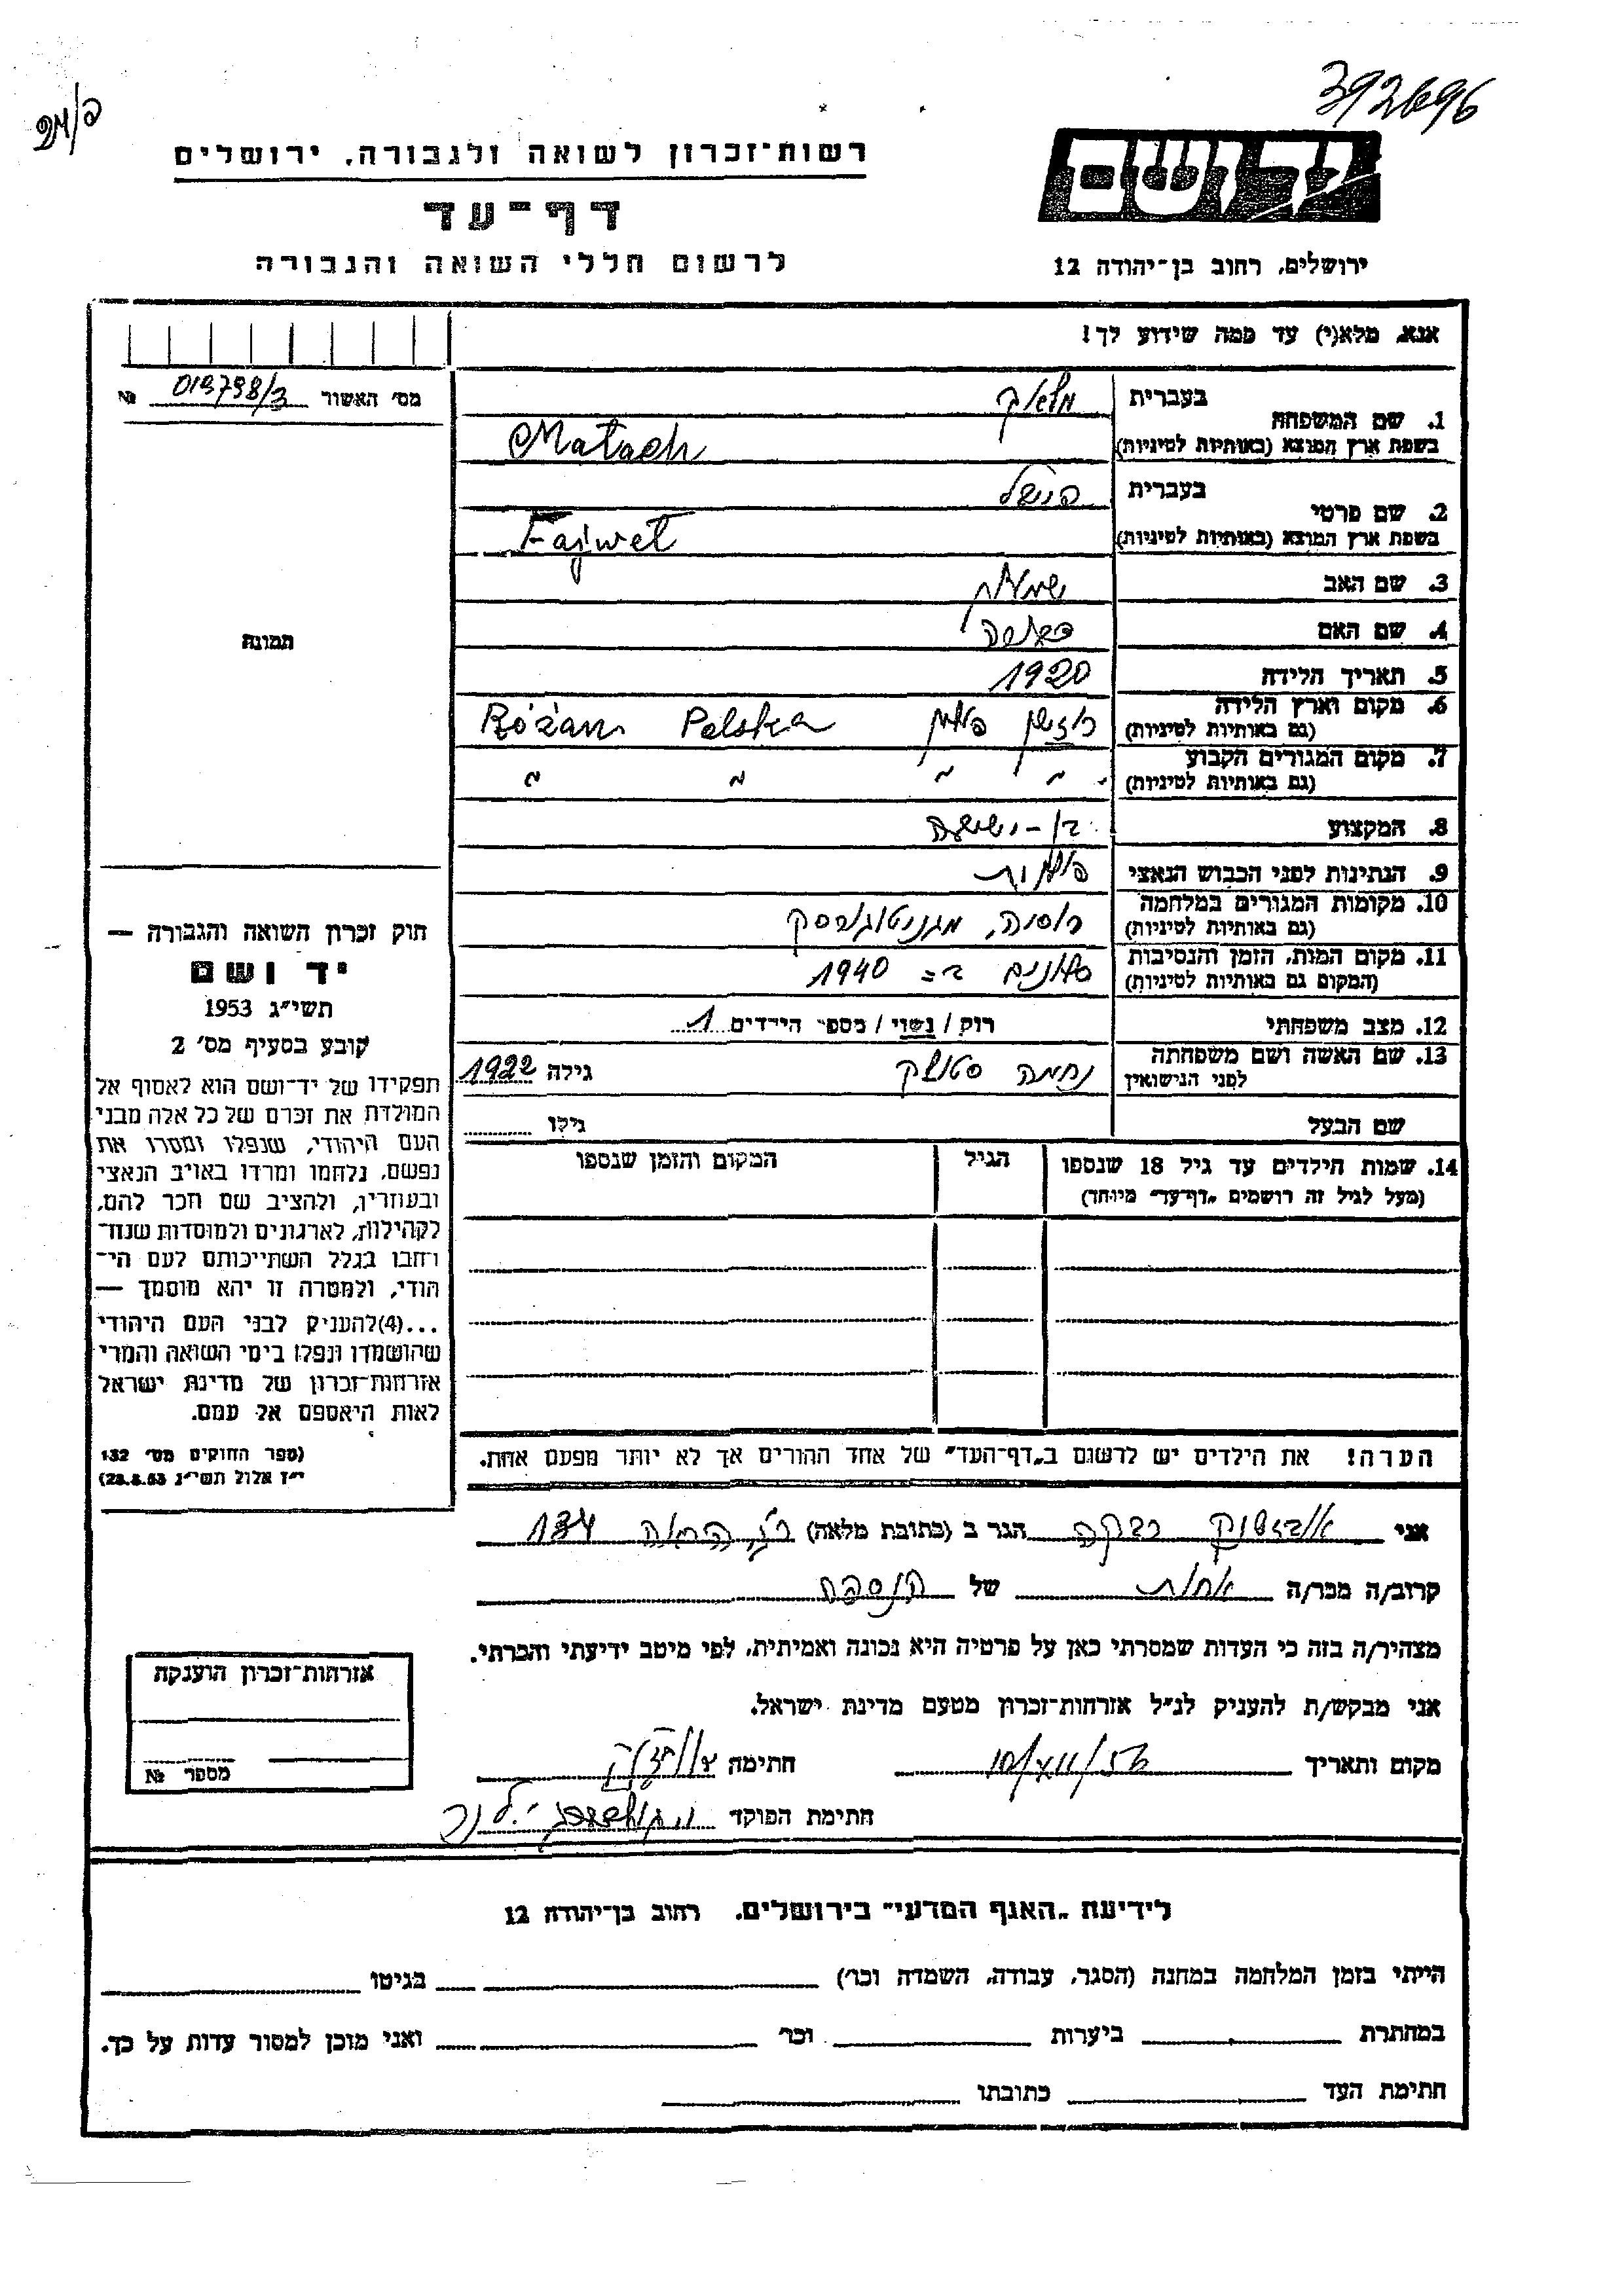 392696
רשות־זכרון לשואה ולגבורה, ירושלים
יד ושם
דף־עד
לרשום חללי השואה והגבורה
ירושלים, רחוב בן־יהודה 12
אנא, מלא(י) עד כמה שידוע לך!
מס׳ האשור 019798/3 №
1. שם המשפחה
בעברית
בשפת ארץ המוצא (באותיות לטיניות)
2. שם פרטי
בעברית פייבל
בשפת ארץ המוצא (באותיות לטיניות) Fajwel
3. שם האב שמואל
4. שם האם
5. תאריך הלידה 1920
6. מקום וארץ הלידה פולין Różan Polska
(גם באותיות לטיניות)
7. מקום המגורים הקבוע " " " "
(גם באותיות לטיניות)
8. המקצוע בן-ישיבה
9. הנתינות לפני הכבוש הנאצי פולנית
10. מקומות המגורים במלחמה רוסיה, מגניטוגורסק
(גם באותיות לטיניות)
11. מקום המות, הזמן והנסיבות ב= 1940
(המקום גם באותיות לטיניות)
12. מצב משפחתי רוק / נשוי / מספר הילדים 1
13. שם האשה ושם משפחתה
לפני הנישואין נחמה גילה 1922
שם הבעל גילו
14. שמות הילדים עד גיל 18 שנספו
(מעל לגיל זה רושמים „דף־עד״ מיוחד)
הגיל
המקום והזמן שנספו
הערה! את הילדים יש לרשום ב„דף־העד״ של אחד ההורים אך לא יותר מפעם אחת.
תמונה
חוק זכרון השואה והגבורה —
יד ושם
תשי״ג 1953
קובע בסעיף מס׳ 2
תפקידו של יד־ושם הוא לאסוף אל
המולדת את זכרם של כל אלה מבני
העם היהודי, שנפלו ומסרו את
נפשם, נלחמו ומרדו באויב הנאצי
ובעוזריו, ולהציב שם וזכר להם,
לקהילות, לארגונים ולמוסדות שנח־
רחבו בגלל השתייכותם לעם הי־
הודי, ולמטרה זו יהא מוסמך —
...(4)להעניק לבני העם היהודי
שהושמדו ונפלו בימי השואה והמרי
אזרחות־זכרון של מדינת ישראל
לאות היאספם אל עמם.
(ספר החוקים מס׳ 132
י״ז אלול תשי״ג 28.8.53)
אני רבקה הגר ב (כתובת מלאה) 134
קרוב/ה מכר/ה אחות של הנספה
מצהיר/ה בזה כי העדות שמסרתי כאן על פרטיה היא נכונה ואמיתית, לפי מיטב ידיעתי והכרתי.
אני מבקש/ת להעניק לנ״ל אזרחות־זכרון מטעם מדינת ישראל.
מקום ותאריך חתימה
חתימת הפוקד
אזרחות־זכרון הוענקה
מספר №
לידיעת „האגף המדעי״ בירושלים, רחוב בן־יהודה 12
הייתי בזמן המלחמה במחנה (הסגר, עבודה, השמדה וכר׳) בגיטו
במחתרת ביערות וכר׳ ואני מוכן למסור עדות על כך.
חתימת העד כתובתו